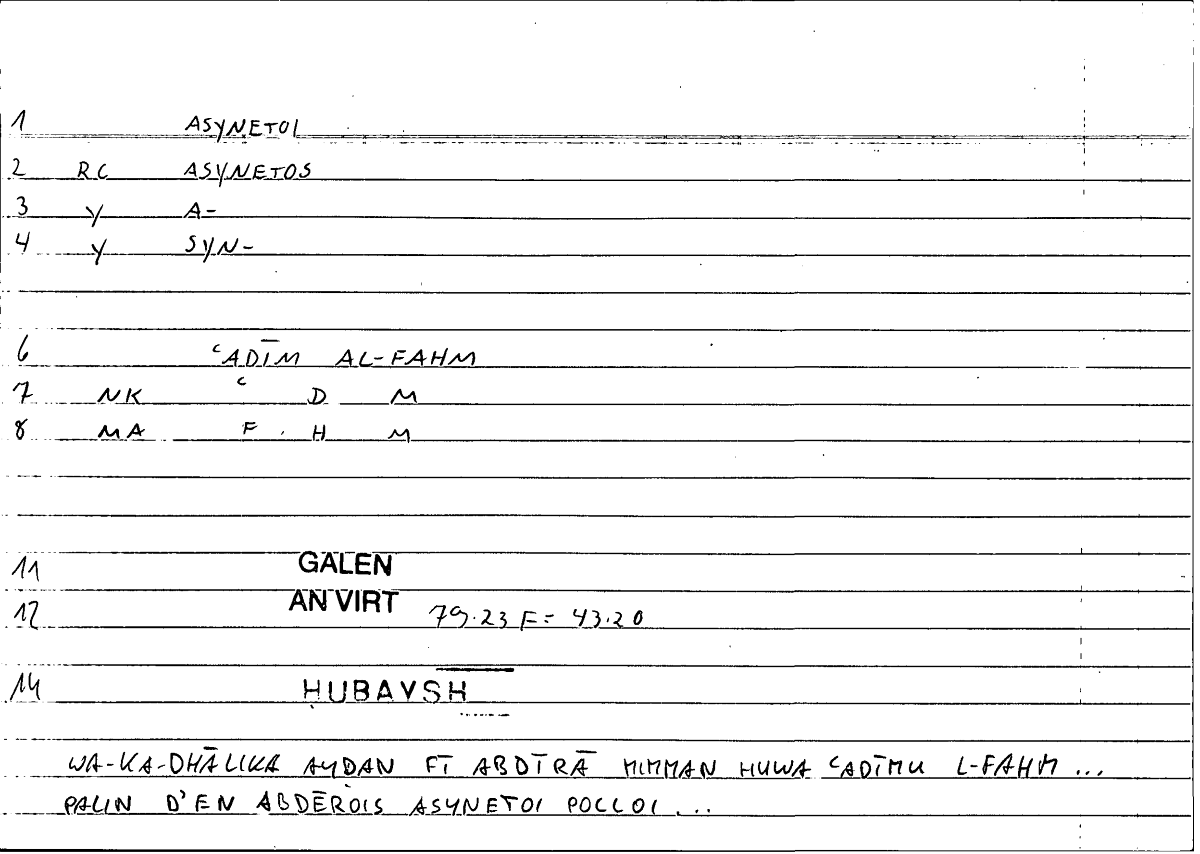 1 ASYNETOI
2 RC ASYNETOS
3 Y A-
4 Y SYN-
6 ʿADĪM AL-FAHM
7 NK ʿ D M
8 MA F H M
11 GALEN
12 AN VIRT 79.23 F = 43.20
14 ḤUBAYSH
WA-KA-DHĀLIKA AYḌAN FĪ ABDĪRĀ MIMMAN HUWA ʿADĪMU L-FAHM ...
PALIN D'EN ABDĒROIS ASYNETOI POLLOI ...